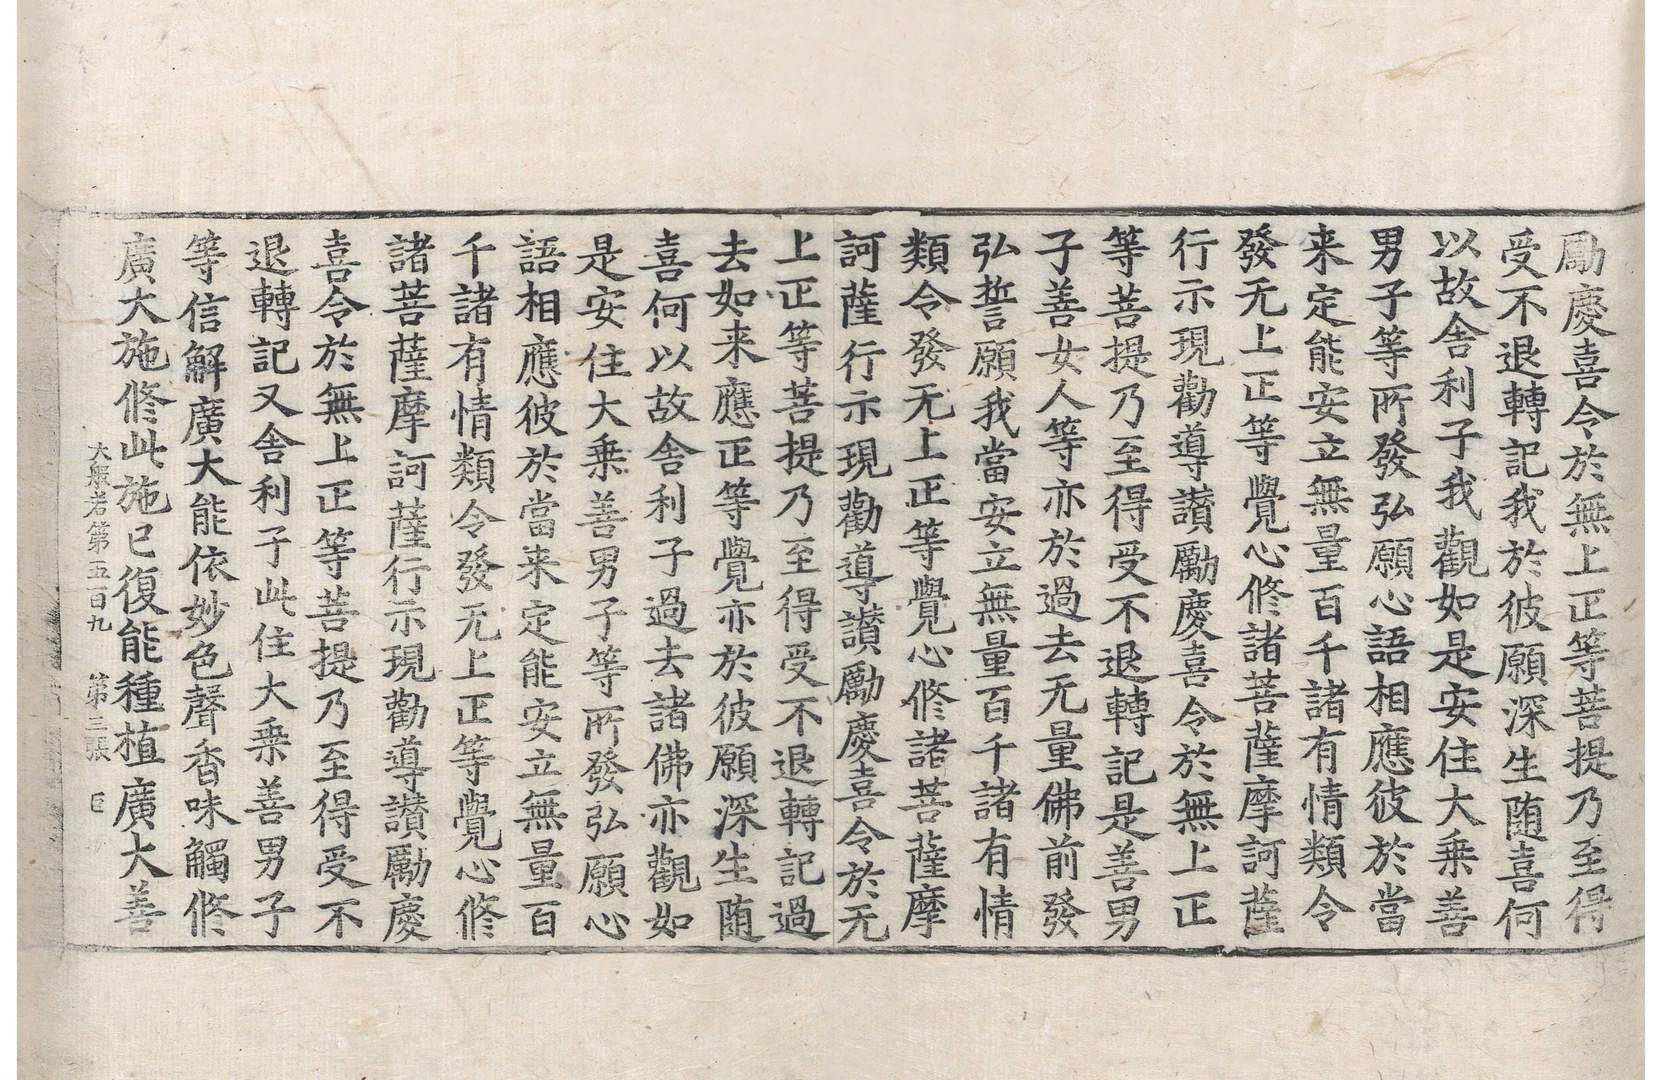 勵慶喜令於無上正等菩提乃至得
受不退轉記我於彼願深生随喜何
以故舎利子我觀如是安住大乗善
男子等所發弘願心語相應彼於當
来定能安立無量百千諸有情類令
發无上正等覺心修諸菩薩摩訶薩
行示現勸導讃勵慶喜令於無上正
等菩提乃至得受不退轉記是善男
子善女人等亦於過去无量佛前發
弘誓願我當安立無量百千諸有情
類令發无上正等覺心修諸菩薩摩
訶薩行示現勸導讃勵慶喜令於无
上正等菩提乃至得受不退轉記過
去如来應正等覺亦於彼願深生随
喜何以故舎利子過去諸佛亦觀如
是安住大乗善男子等所發弘願心
語相應彼於當来定能安立無量百
千諸有情類令發无上正等覺心修
諸菩薩摩訶薩行示現勸導讃勵慶
喜令於無上正等菩提乃至得受不
退轉記又舎利子此住大乗善男子
等信解廣大能依妙色聲香味觸修
廣大施修此施已復能種植廣大善
大般若第五百九 第三張